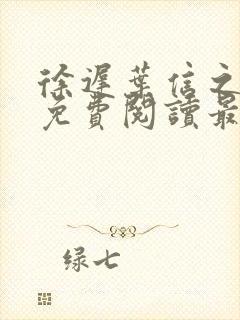 徐遲葉信之
免費閱讀最
綠七